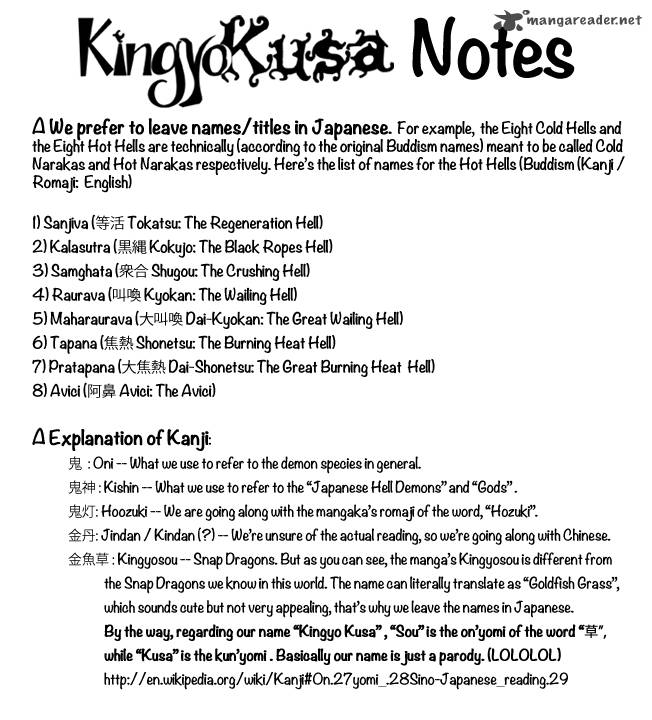 mangareader.net
KingyoKusa Notes
Δ We prefer to leave names/titles in Japanese. For example, the Eight Cold Hells and
the Eight Hot Hells are technically (according to the original Buddism names) meant to be called Cold
Narakas and Hot Narakas respectively. Here's the list of names for the Hot Hells (Buddism (Kanji /
Romaji: English)
1) Sanjiva (等活 Tokatsu: The Regeneration Hell)
2) Kalasutra (黒縄 Kokujo: The Black Ropes Hell)
3) Samghata (衆合 Shugou: The Crushing Hell)
4) Raurava (叫喚 Kyokan: The Wailing Hell)
5) Maharaurava (大叫喚 Dai-Kyokan: The Great Wailing Hell)
6) Tapana (焦熱 Shonetsu: The Burning Heat Hell)
7) Pratapana (大焦熱 Dai-Shonetsu: The Great Burning Heat Hell)
8) Avici (阿鼻 Avici: The Avici)
Δ Explanation of Kanji:
鬼 : Oni -- What we use to refer to the demon species in general.
鬼神 : Kishin -- What we use to refer to the "Japanese Hell Demons" and "Gods" .
鬼灯: Hoozuki -- We are going along with the mangaka's romaji of the word, "Hozuki".
金丹: Jindan / Kindan (?) -- We're unsure of the actual reading, so we're going along with Chinese.
金魚草 : Kingyosou -- Snap Dragons. But as you can see, the manga's Kingyosou is different from
the Snap Dragons we know in this world. The name can literally translate as "Goldfish Grass",
which sounds cute but not very appealing, that's why we leave the names in Japanese.
By the way, regarding our name "Kingyo Kusa" , "Sou" is the on'yomi of the word "草",
while "Kusa" is the kun'yomi . Basically our name is just a parody. (LOLOLOL)
http://en.wikipedia.org/wiki/Kanji#On.27yomi_.28Sino-Japanese_reading.29